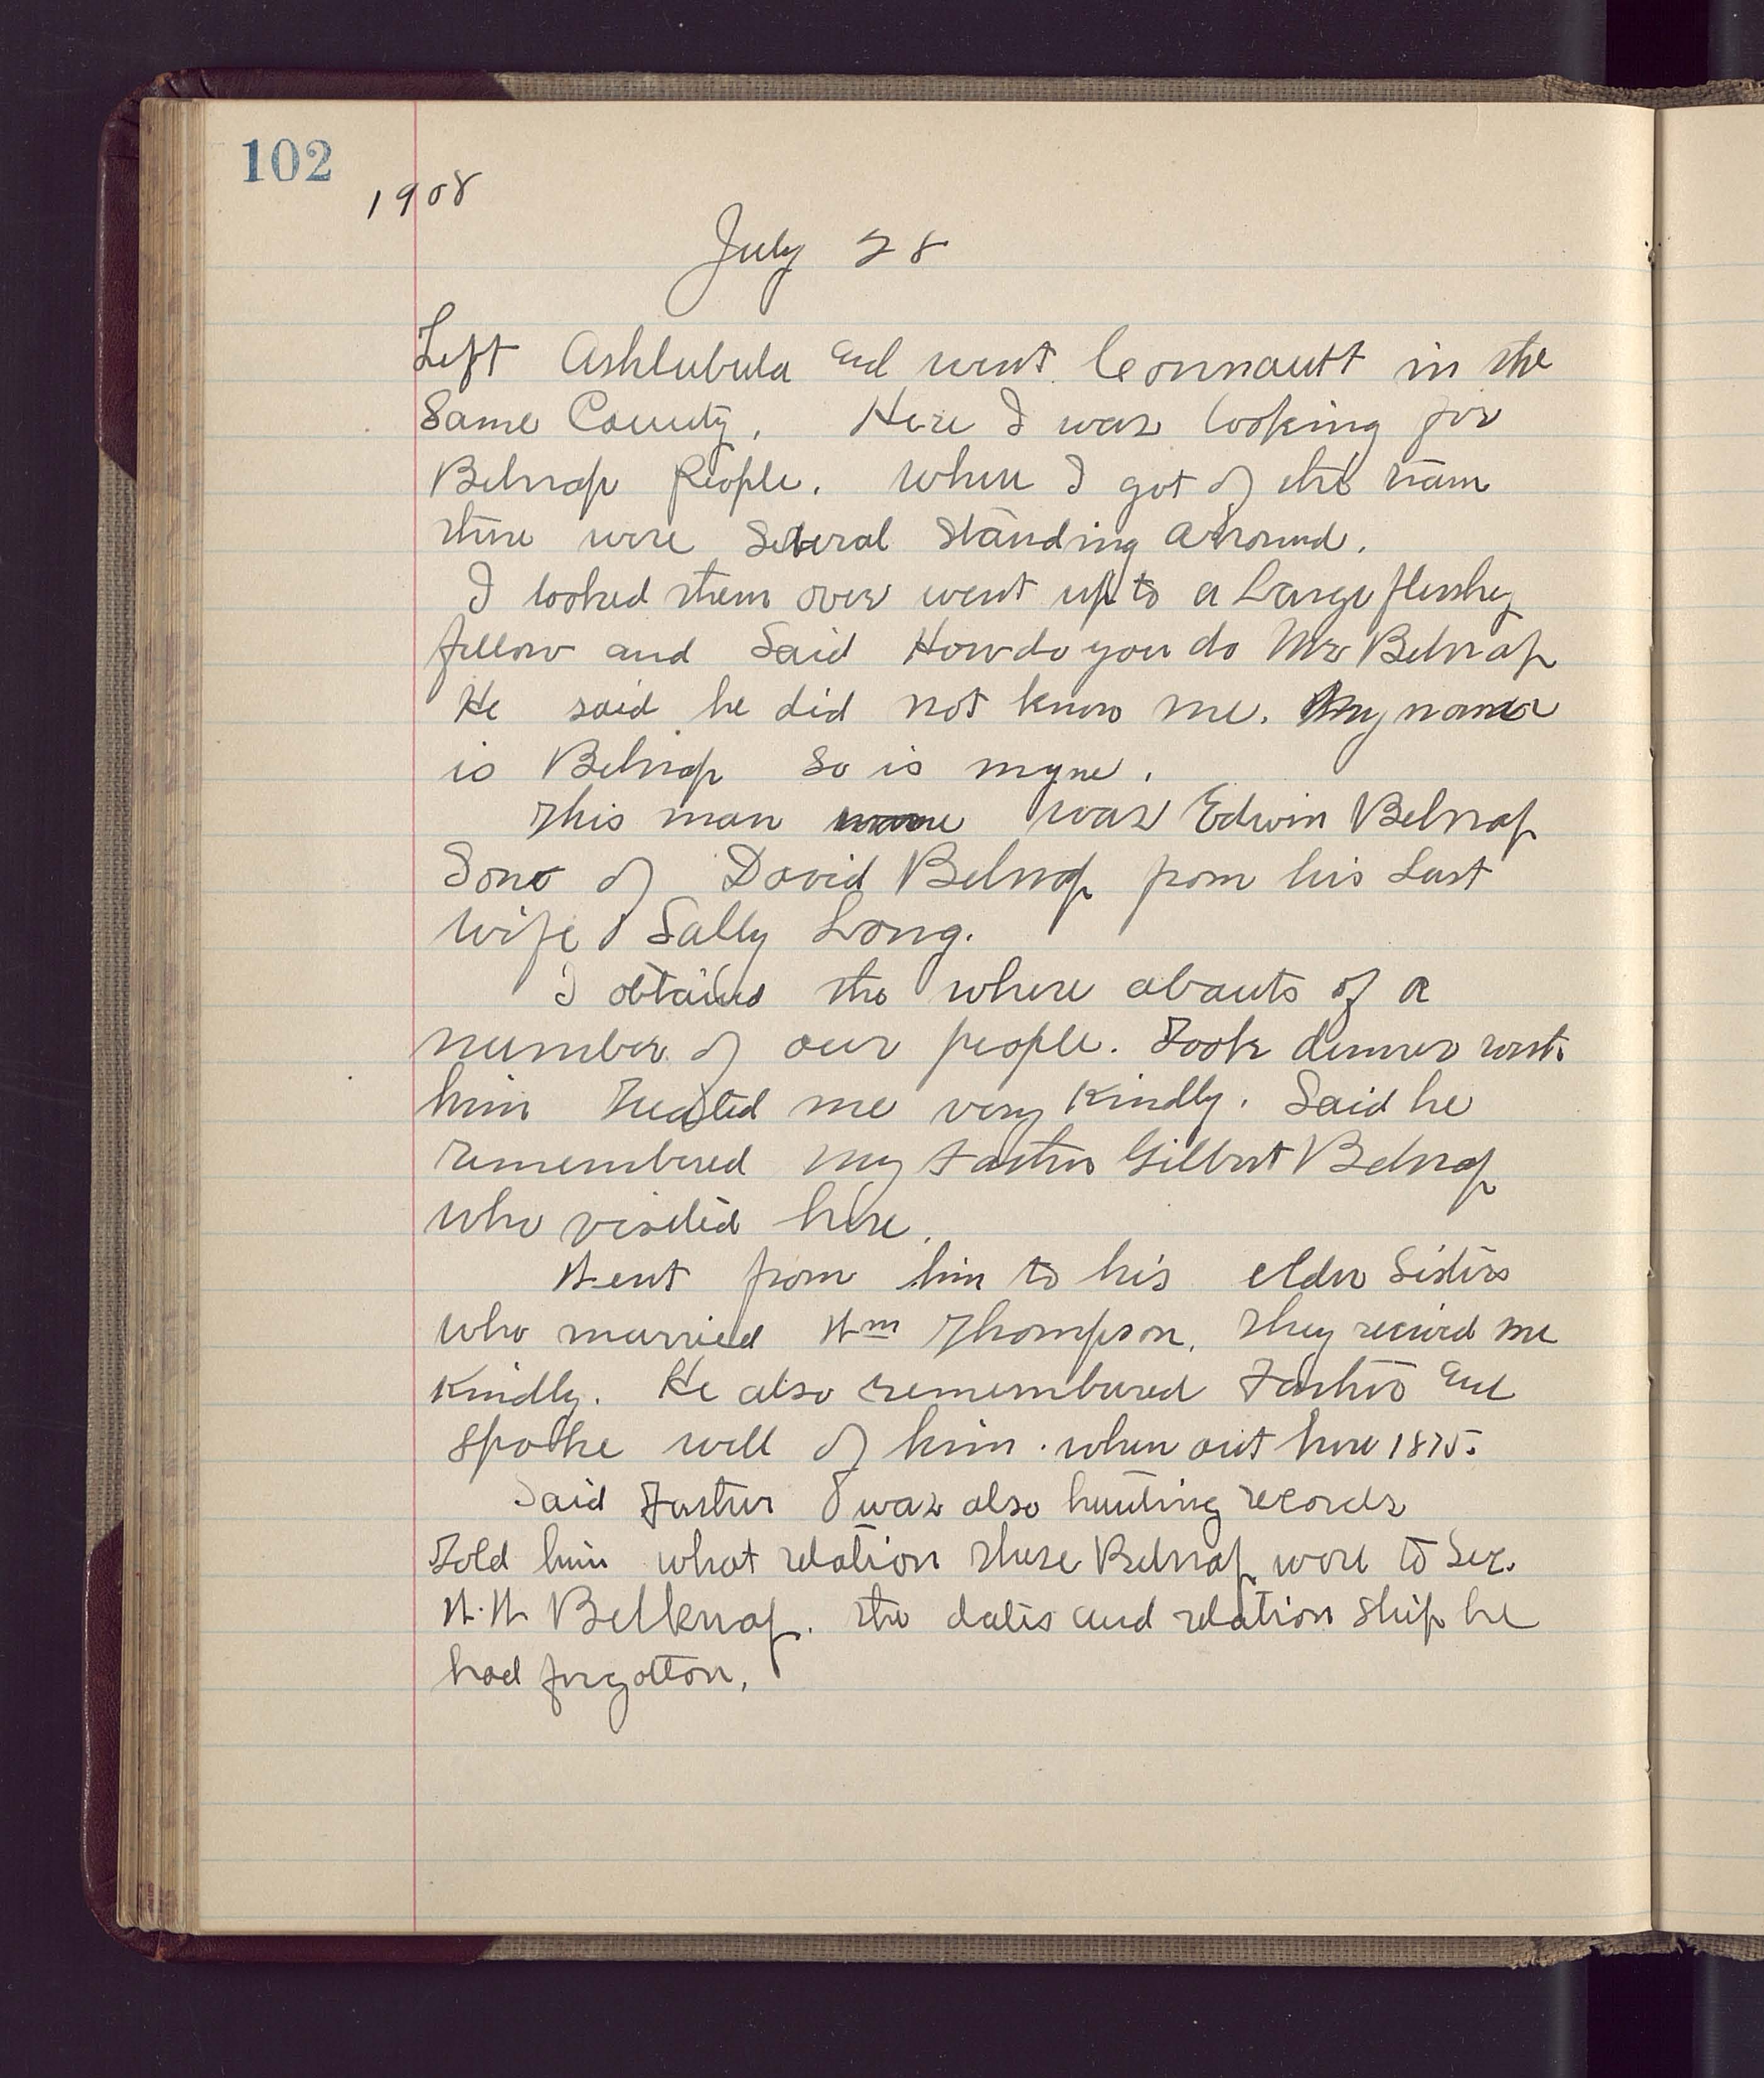 102
1908
July 28
Left Ashtubula and went Connautt in the
Same County. Here I was looking for
Belnap People. When I got of the train
there were Several Standing arround.
I looked them over went up to a Large fleshey
fellow and Said How do you do Mr Belnap
He said he did not know me. My name
is Belnap So is myne.
This man was Edwin Belnap
Son of David Belnap from his Last
wife Sally Long.
I obtained the where abouts of a
number of our people. Took dinner with
him Treated me very Kindly. Said he
remembered my Father Gilbert Belnap
who visited here.
Went from him to his elder Sisters
who married Wm Thompson. They recived me
Kindly. He also remembered Father and
Spoke well of him. when out here 1875.
Said Father was also hunting records
Told him what relation these Belnap were to Sec.
W. W. Belknap. the dates and relation Ship he
had forgotton.